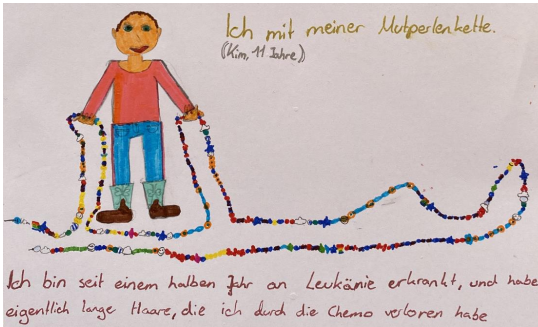 Ich mit meiner Mutperlenkette.
(Kim, 11 Jahre)
Ich bin seit einem halben Jahr an Leukämie erkrankt, und habe
eigentlich lange Haare, die ich durch die Chemo verloren habe